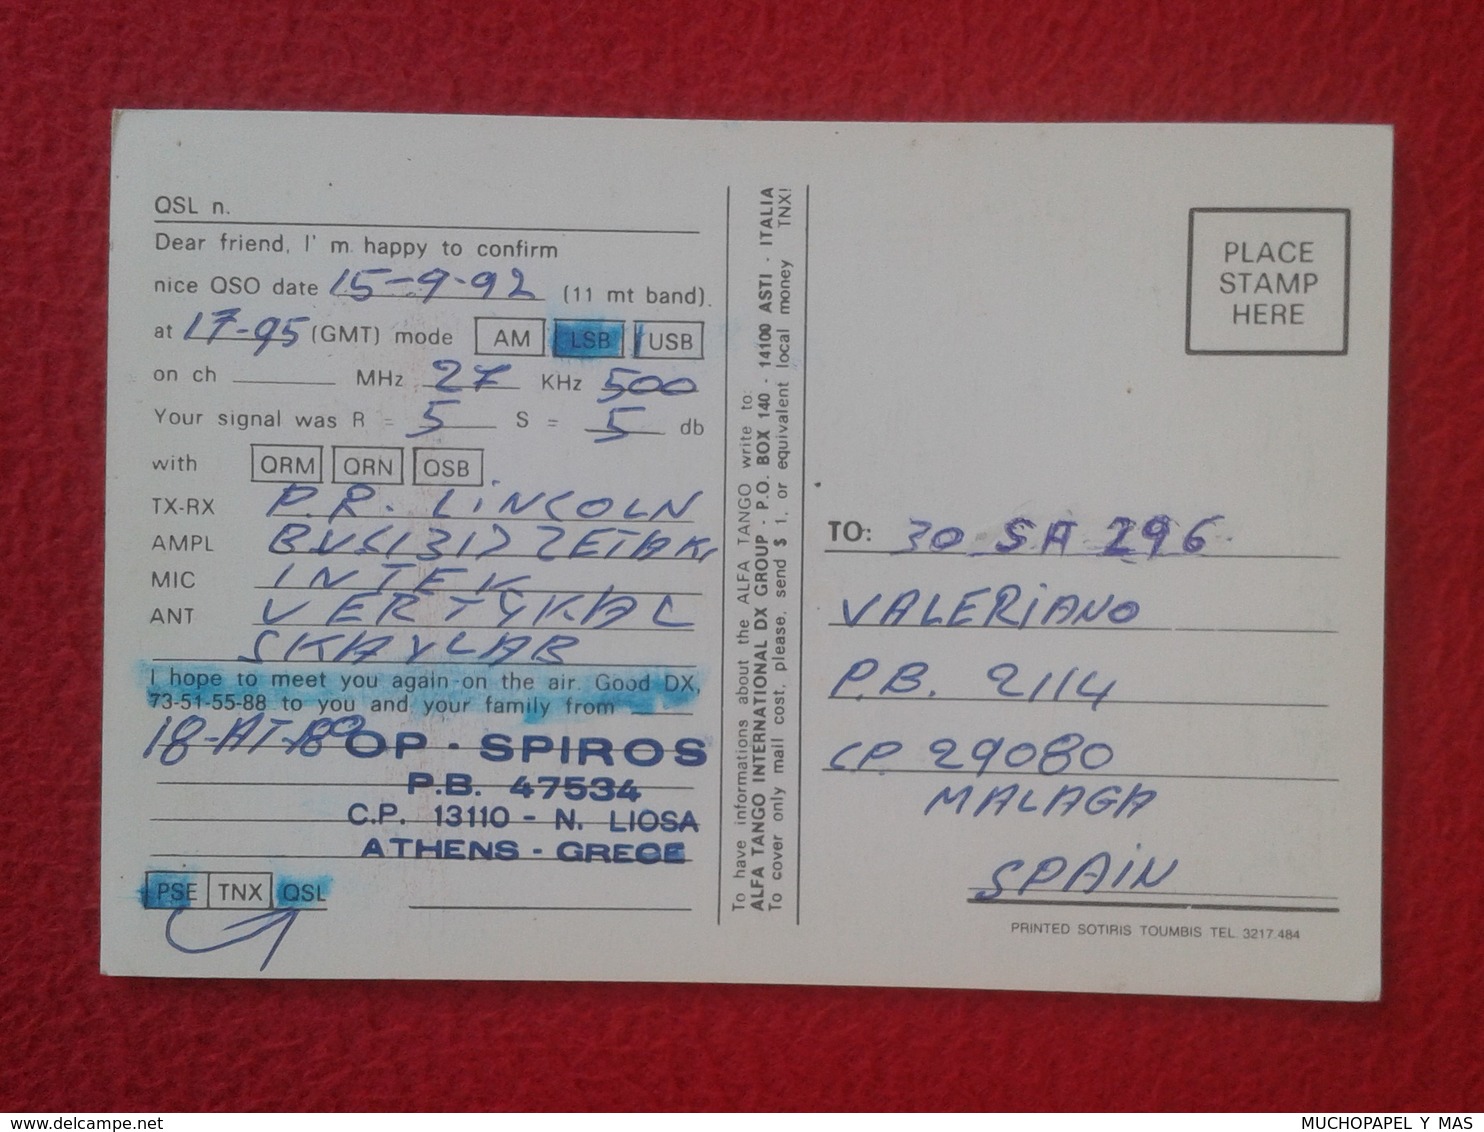 QSL n.
Dear friend, I'm happy to confirm
nice QSO date 15-9-92 (11 mt band).
at 17-95 (GMT) mode AM LSB USB
on ch MHz 27 KHz 500
Your signal was R = 5 S = 5 db
with QRM QRN QSB
TX-RX P.R. LiNCOLN
AMPL ZETAKi
MIC INTEK
ANT VERTYKAL
SKAYLAB
I hope to meet you again on the air. Good DX,
73-51-55-88 to you and your family from
18-AT-180 OP - SPIROS
P.B. 47534
C.P. 13110 - N. LIOSA
ATHENS - GREECE
PSE TNX QSL
To have informations about the ALFA TANGO write to:
ALFA TANGO INTERNATIONAL DX GROUP - P.O. BOX 140 - 14100 ASTI - ITALIA
To cover only mail cost, please, send $ 1, or equivalent local money TNX!
PLACE
STAMP
HERE
TO: 30 SA 296
VALERiANO
P.B. 2114
CP. 29080
MALAGA
SPAiN
PRINTED SOTIRIS TOUMBIS TEL. 3217.484
delcampe.net
MUCHOPAPEL Y MAS